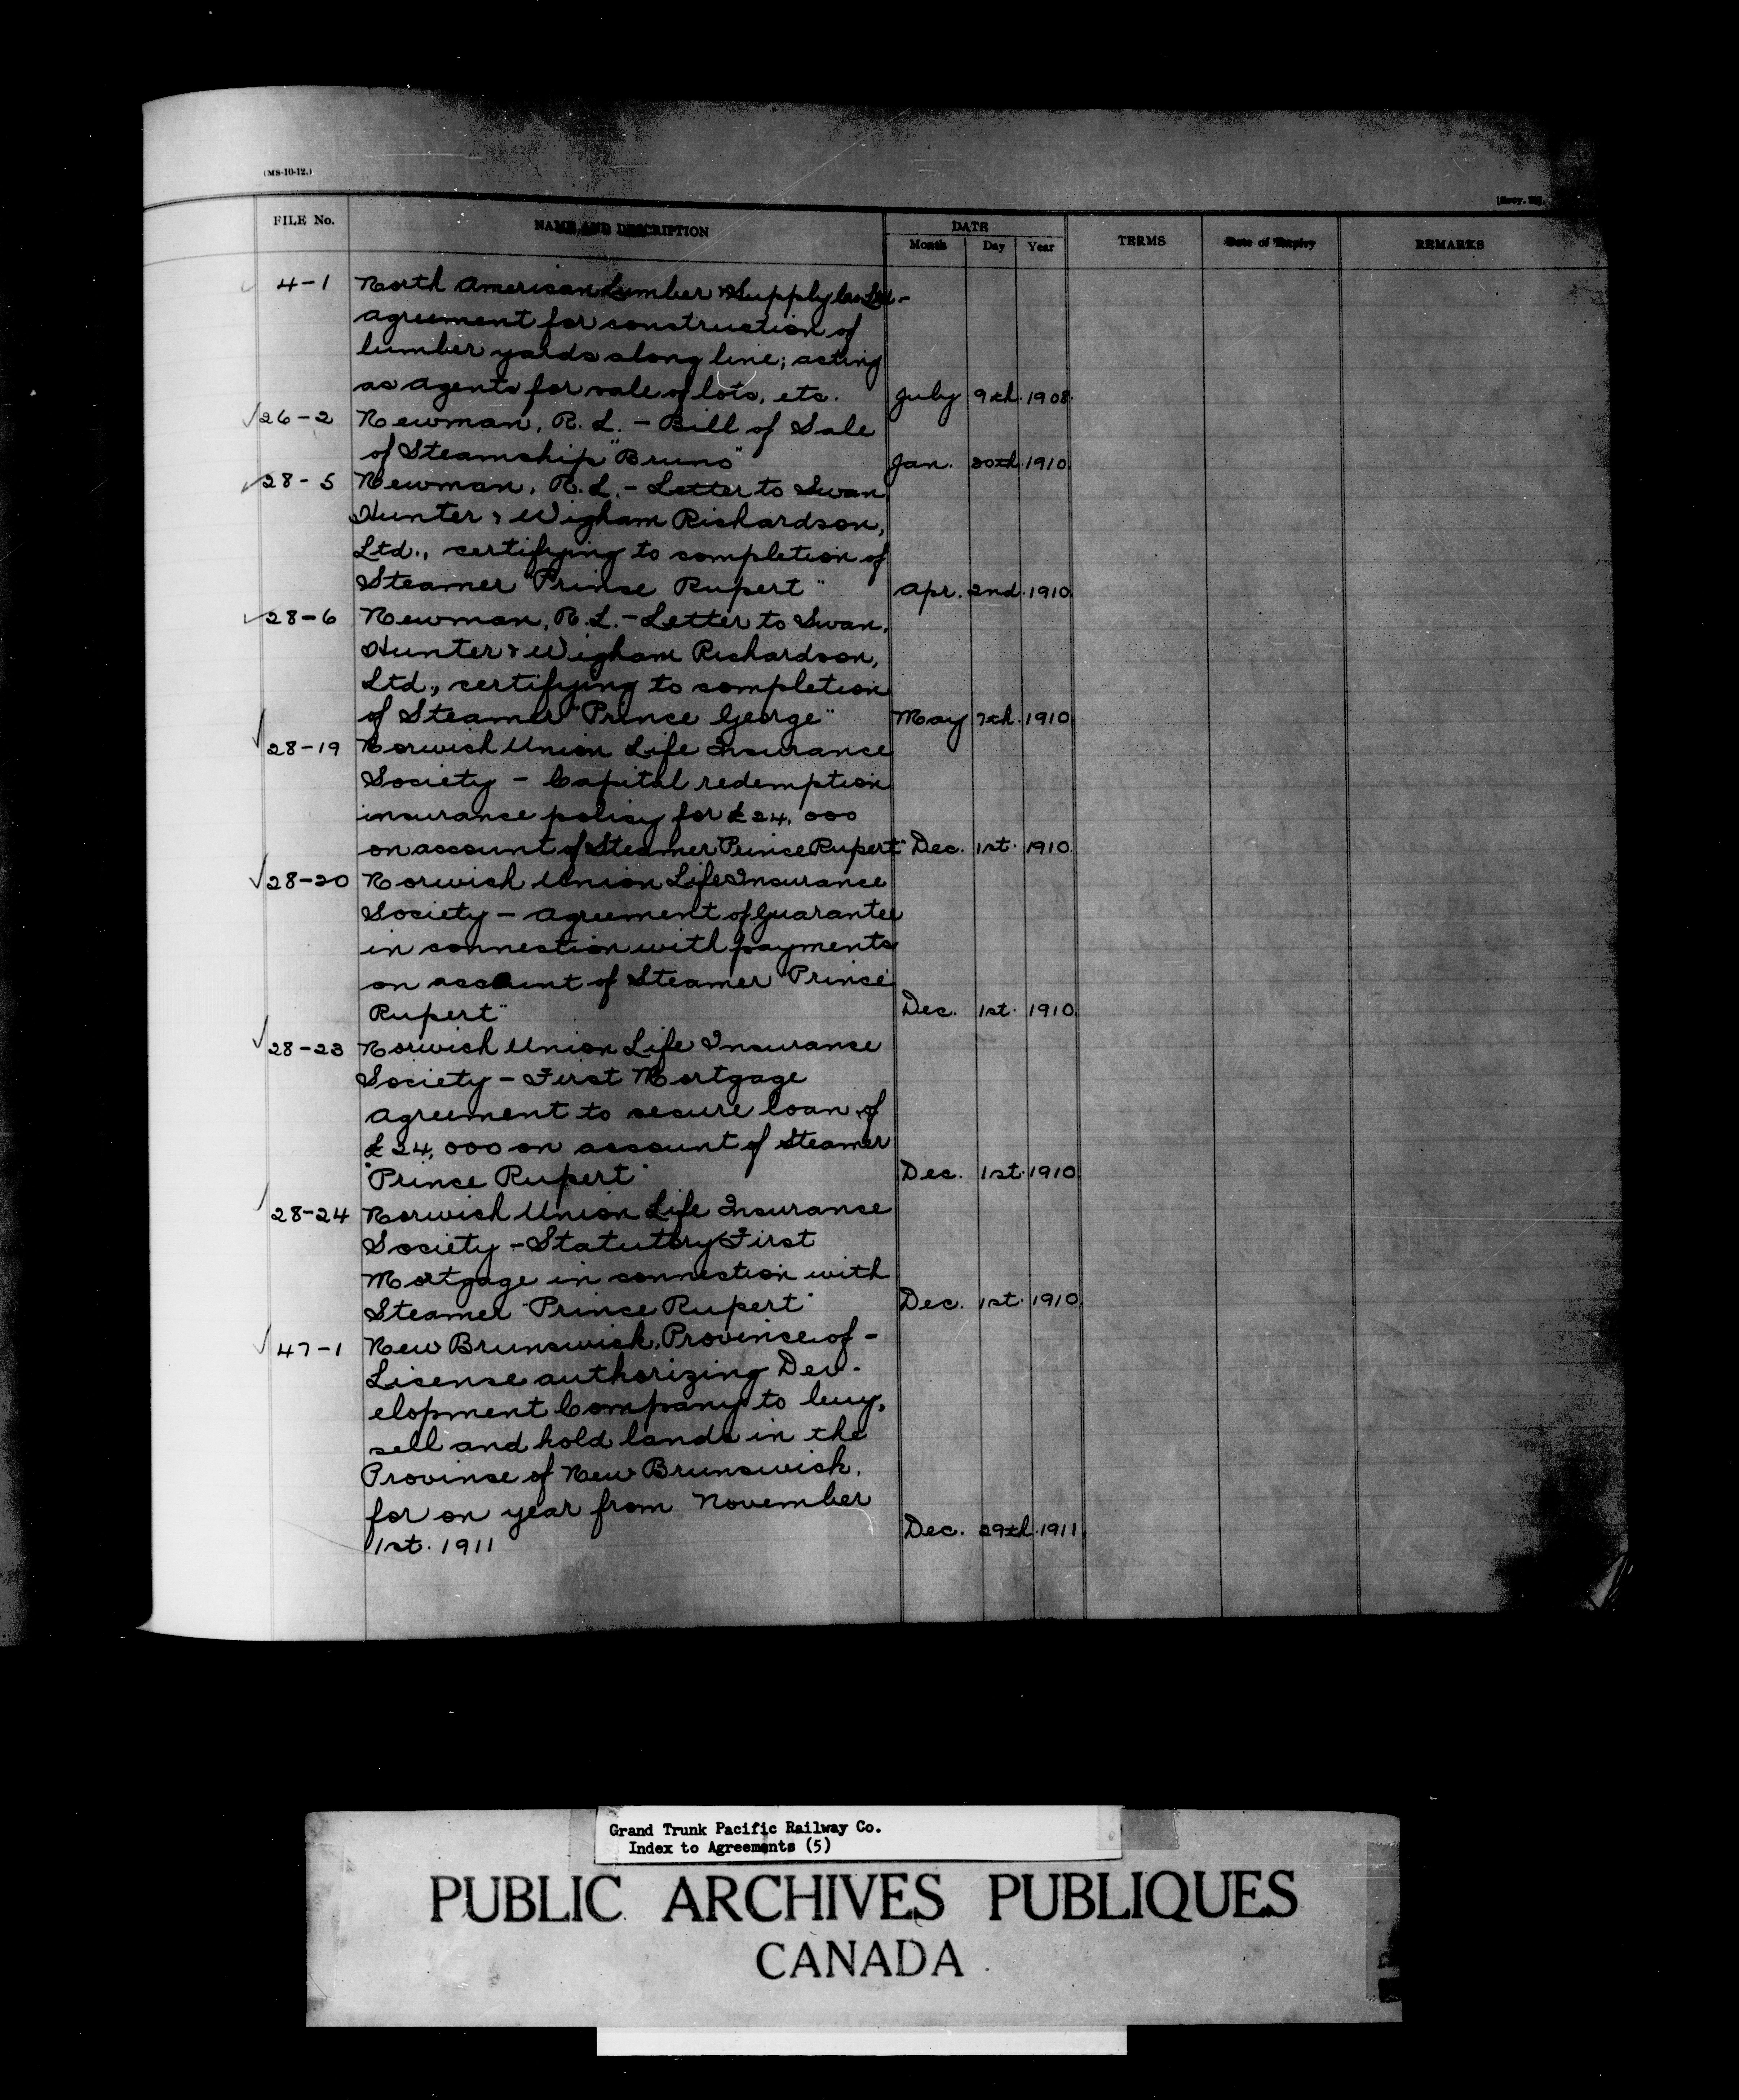 (MS-10-12.)
FILE No. NAME AND DESCRIPTION DATE TERMS Date of Expiry REMARKS
Month Day Year
4-1 North American Lumber & Supply Co Ltd -
agreement for construction of
lumber yards along line; acting
as agents for sale of lots, etc. July 9th. 1908.
26-2 Newman, R. L. - Bill of Sale
of Steamship "Bruno" Jan. 20th. 1910.
28-5 Newman, R. L. - Letter to Swan,
Hunter & Wigham Richardson,
Ltd., certifying to completion of
Steamer "Prince Rupert" Apr. 2nd. 1910.
28-6 Newman, R. L. - Letter to Swan,
Hunter & Wigham Richardson,
Ltd., certifying to completion
of Steamer "Prince George" May 7th. 1910
28-19 Norwich Union Life Insurance
Society - Capital redemption
insurance policy for £24,000
on account of Steamer "Prince Rupert" Dec. 1st. 1910.
28-20 Norwich Union Life Insurance
Society - Agreement of Guarantee
in connection with payments
on account of Steamer "Prince
Rupert" Dec. 1st. 1910.
28-23 Norwich Union Life Insurance
Society - First Mortgage
Agreement to secure loan of
£24,000 on account of Steamer
"Prince Rupert" Dec. 1st. 1910.
28-24 Norwich Union Life Insurance
Society - Statutory First
Mortgage in connection with
Steamer "Prince Rupert" Dec. 1st. 1910.
47-1 New Brunswick, Province of -
License authorizing Dev-
elopment Company to buy,
sell and hold lands in the
Province of New Brunswick,
for on year from November
1st. 1911 Dec. 29th. 1911.
Grand Trunk Pacific Railway Co.
Index to Agreements (5)
PUBLIC ARCHIVES PUBLIQUES
CANADA